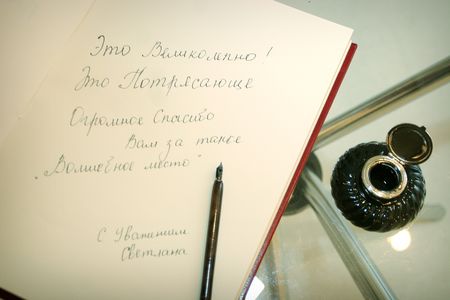 Это Великолепно!
Это Потрясающе
Огромное Спасибо
Вам за такое
„Волшебное место"
С Уважением
Светлана